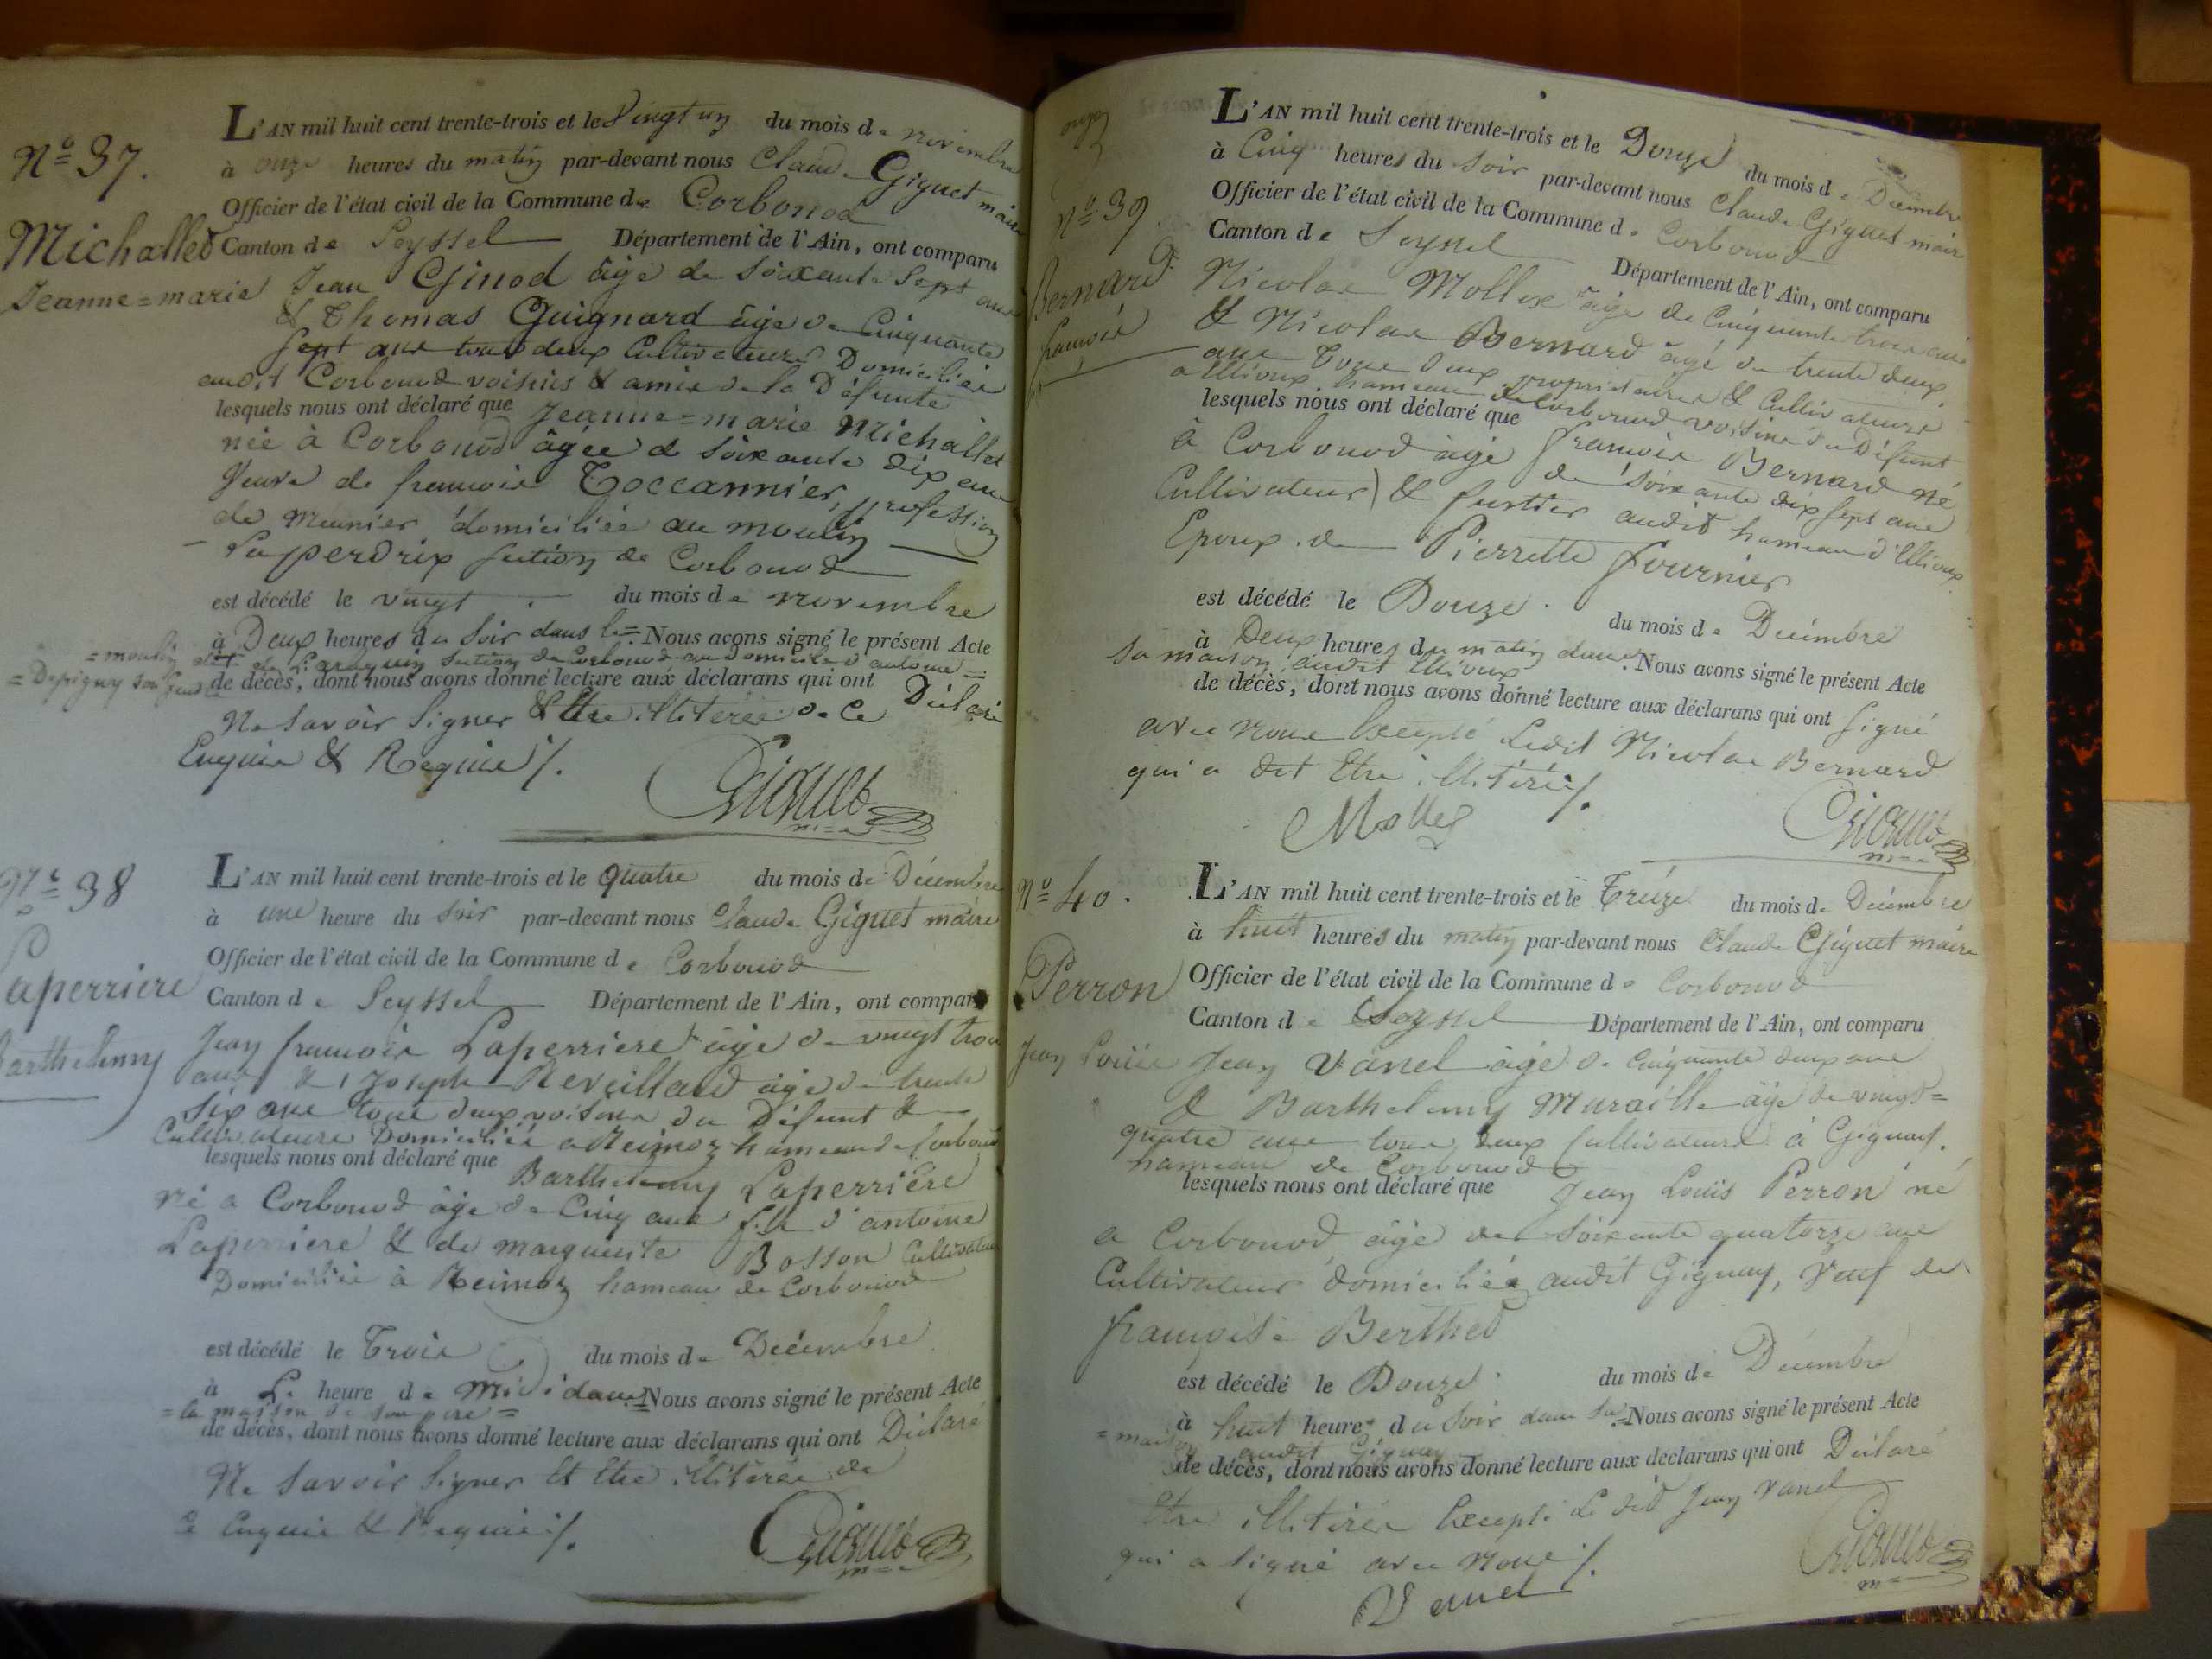 N.º 37.
Michallet
Jeanne=marie
L'AN mil huit cent trente-trois et le Vingt un du mois de novembre
à onze heures du matin par-devant nous Claude Giguet maire
Officier de l'état civil de la Commune de Corbonod
Canton de Seyssel Département de l'Ain, ont comparu
Jean Ginod âgé de soixante sept ans
& Thomas Guignard âgé de Cinquante
sept ans tous deux Cultivateurs Domiciliés
audit Corbonod voisins & amis de la Défunte
lesquels nous ont déclaré que Jeanne=marie Michallet
née à Corbonod âgée de soixante dix ans
Veuve de francois Toccannier, profession
de meunier domiciliée au moulin
la perdrix section de Corbonod
est décédé le vingt du mois de novembre
à Deux heures du soir dans le= Nous avons signé le présent Acte
=moulin dit de section de Corbonod au domicile d'antoine=
=Depigny son
de décès, dont nous avons donné lecture aux déclarans qui ont Déclaré
Ne savoir signer & Etre illitérés de ce
Enquis & Requis /.
Giguet
m=e
N.º 38
Laperriere
Barthelemy
L'AN mil huit cent trente-trois et le quatre du mois de Décembre
à une heure du soir par-devant nous Claude Giguet maire
Officier de l'état civil de la Commune de Corbonod
Canton de Seyssel Département de l'Ain, ont comparu
Jean francois Laperriere âgé de vingt trois
ans & Joseph Reveillard âgé de trente
six ans tous deux voisins du Défunt &
Cultivateurs Domiciliés a Reimoz hameau de Corbonod
lesquels nous ont déclaré que Barthelemy Laperriere
né a Corbonod âgé de Cinq ans fils d'antoine
Laperriere & de marguerite Bosson Cultivateurs
Domiciliés à Reimoz hameau de Corbonod
est décédé le Trois du mois de Décembre
à L' heure de midi dans= Nous avons signé le présent Acte
=la maison de son père=
de décès, dont nous avons donné lecture aux déclarans qui ont Déclaré
Ne savoir signer Et Etre illitérés de
ce Enquis & Requis /.
Giguet
m=e
onze
N.º 39
Bernard
francois
L'AN mil huit cent trente-trois et le Douze du mois de Décembre
à Cinq heures du soir par-devant nous Claude Giguet maire
Officier de l'état civil de la Commune de Corbonod
Canton de Seyssel Département de l'Ain, ont comparu
Nicolas Mollex âgé de Cinquante trois ans
& Nicolas Bernard âgé de trente deux
ans Tous deux propriétaires & Cultivateurs
a Ellioux hameau de Corbonod voisins du Défunt
lesquels nous ont déclaré que francois Bernard né
à Corbonod âgé de soixante dix sept ans
Cultivateur & fustier audit hameau d'Ellioux
Epoux de Pierrette fournier
est décédé le Douze du mois de Décembre
à Deux heures du matin dans Nous avons signé le présent Acte
sa maison audit Ellioux
de décès, dont nous avons donné lecture aux déclarans qui ont signé
avec nous Excepté Ledit Nicolas Bernard
qui a dit Etre illitéré /.
Mollex
Giguet
m=e
N.º 40.
Perron
Jean Louis
L'AN mil huit cent trente-trois et le Treize du mois de Décembre
à huit heures du matin par-devant nous Claude Giguet maire
Officier de l'état civil de la Commune de Corbonod
Canton de Seyssel Département de l'Ain, ont comparu
Jean Vanel âgé de Cinquante deux ans
& Barthelemy Muraille âgé de vingt=
quatre ans tous deux Cultivateurs à Gignay.
hameau de Corbonod
lesquels nous ont déclaré que Jean Louis Perron né
a Corbonod âgé de soixante quatorze ans
Cultivateur domicilié audit Gignay, Veuf de
francoise Berthet
est décédé le Douze du mois de Décembre
à huit heures du soir dans sa= Nous avons signé le présent Acte
=maison audit Gignay
de décès, dont nous avons donné lecture aux déclarans qui ont Déclaré
Etre illitérés Excepté Le dit Jean Vanel
qui a signé avec nous /.
Vanel
Giguet
m=e